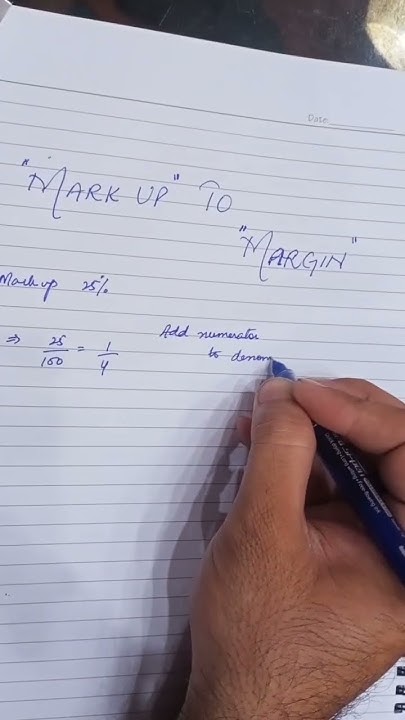 Date:
"MARK UP" TO
"MARGIN"
Mark up 25%
⇒ 25/100 = 1/4
Add numerator
to denom